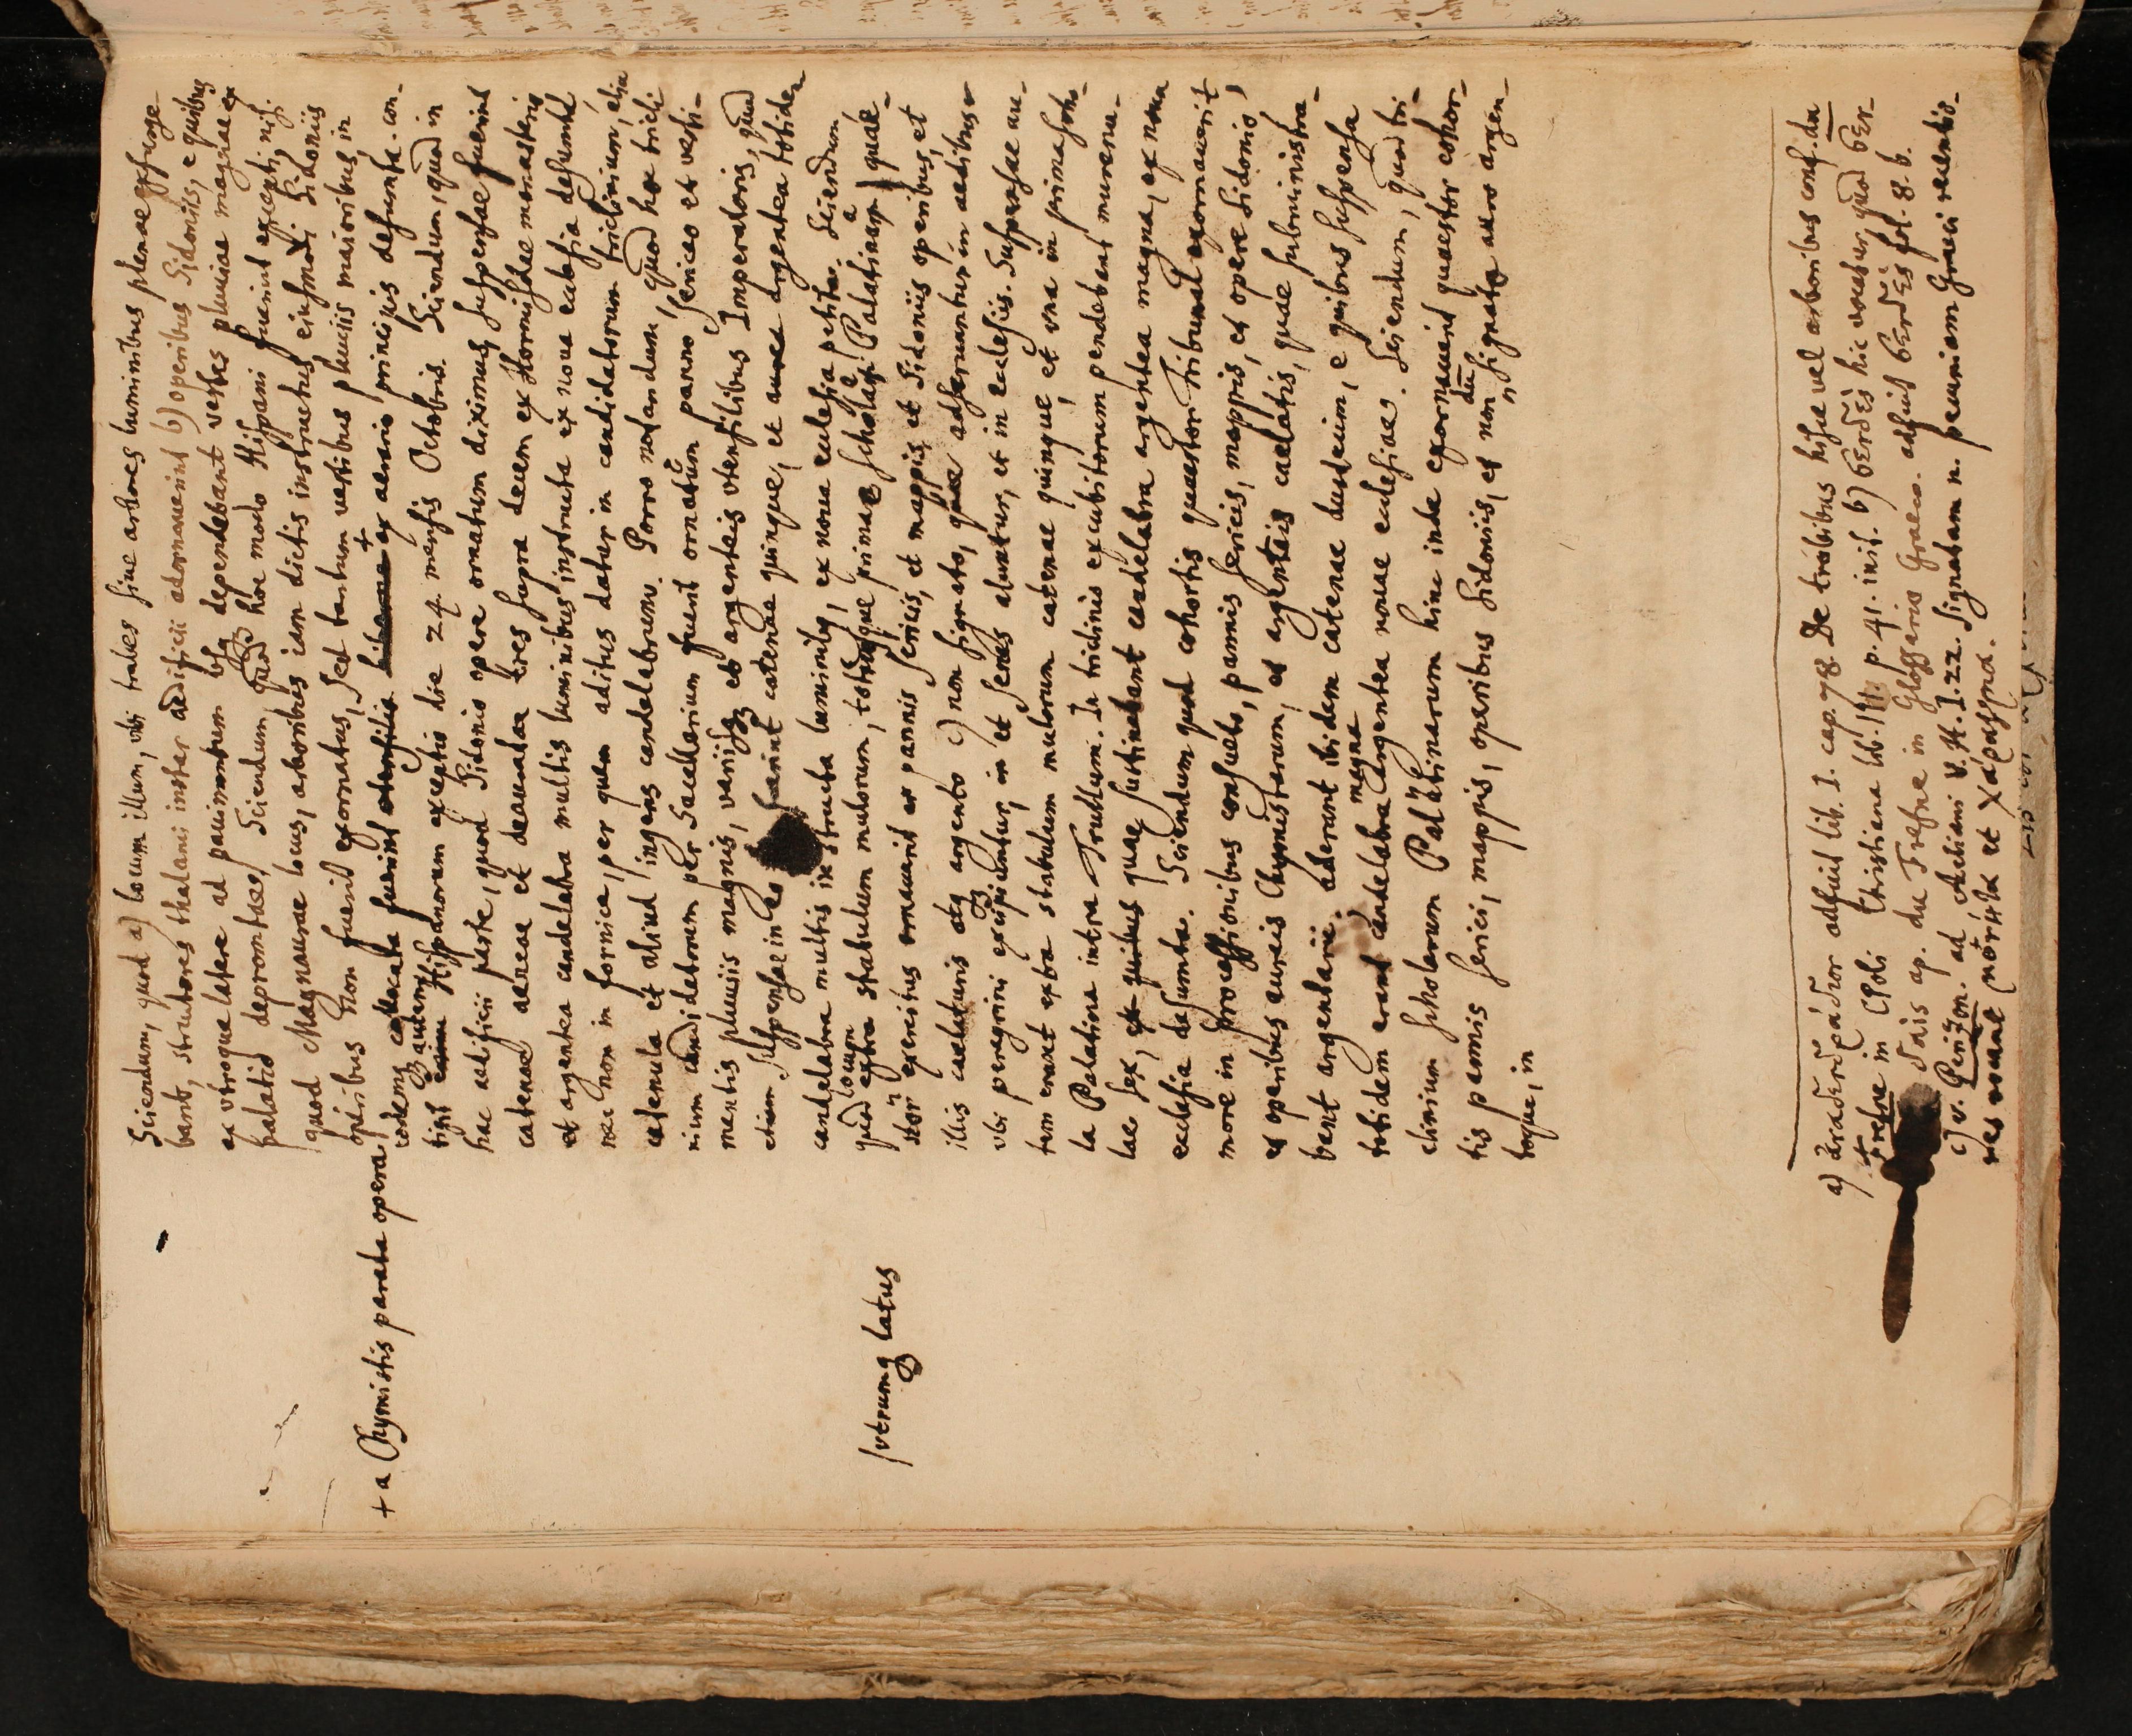 Sciendum, quod a) locum illum, ubi trabes siue arbores luminibus plenae effulge-
bant, structores thalami instar aedificii adornauerint b) operibus Sidoniis, e quibus
ex vtroque latere ad pauimentum vsq dependebant vestes pluuiae magnae ex
palatio depromtae, Sciendum, quod hoc modo Hispani fuerint excepti, nisi
quod Magnaurae locus, arboribus iam dictis instructus, eiusmodi Sidoniis
operibus non fuerit exornatus, sed tantum vestibus pluuiis maioribus, in
eodemq collocata fuerint vtensilia + ex aerario principis desumta. con-
tigit autem Hispanorum exceptio die 24 mensis Octobris. Sciendum, quod in
hac aedificii parte, quod Sidonio opere ornatum diximus, suspensae fuerint
catenae aereae et deauratae tres supra decem ex Hormisdae monasterio
et argentea candelabra multis luminibus instructa ex noua ecclesia desumta
nec non in fornice, per quem aditus datur in candidatorum triclinium, alia
catenula et aliud ingens candelabrum. Porro notandum, quod hoc tricli-
nium candidatorum per Sacellarium fuerit ornatum panno serico et vesti-
mentis pluuiis magnis, variisq et argenteis vtensilibus Imperatoris, quod
etiam suspensae in eo fuerint catenae quinque, et aurea argentea totidem
candelabra multis instructa luminibq, ex noua ecclesia petita. Sciendum
quod locum extra stabulum mulorum, totumque primae scholae Palatinae | quae-
stor exercitus ornauerit ex pannis sericis, et mappis et Sidoniis operibus, et
illis caelaturis atq argento c) non signato, quae adseruantur in aedibus
vbi peregrini excipiuntur, in et senes aluntur, et in ecclesiis. Suspensae au-
tem erant extra stabulum mulorum catenae quinque, et vna in prima scho-
la Palatina intra Trullum. In tricliniis excubitorum pendebant murenu-
lae sex, et quibus quae sustinebant candelabra argentea magna, ex noua
ecclesia desumta. Sciendum quod cohortis quaestor Tribunal exornauerit
more in processionibus consueto, pannis sericis, mappis, et opere Sidonio,
et operibus aureis Chymistarum, et argenteis caelatis, quae subministra-
bant argentarii. aderant ibidem catenae duodecim, e quibus suspensa
totidem erant candelabra magna argentea nouae ecclesiae. Sciendum, quod tri-
clinium scholarum Palatinarum hinc inde exornauerit quaestor cohor-
tis pannis sericis, mappis, operibus Sidoniis, et non dū signato auro argen-
toque, in
+ a Chymistis parata opera
| vtrumq latus
a) ἀναδενδράδιον adfuit lib. I. cap. 78 De trabibus hisce vel arboribus conf. du
Fresne in CPoli Christiana lib. III. p. 41. init. b)
du Fresne in Glossario Graeco.
c) v. Perizon. ad Aeliani V. H. I. 22. signatam n. pecuniam Graeci recentio-
res vocant